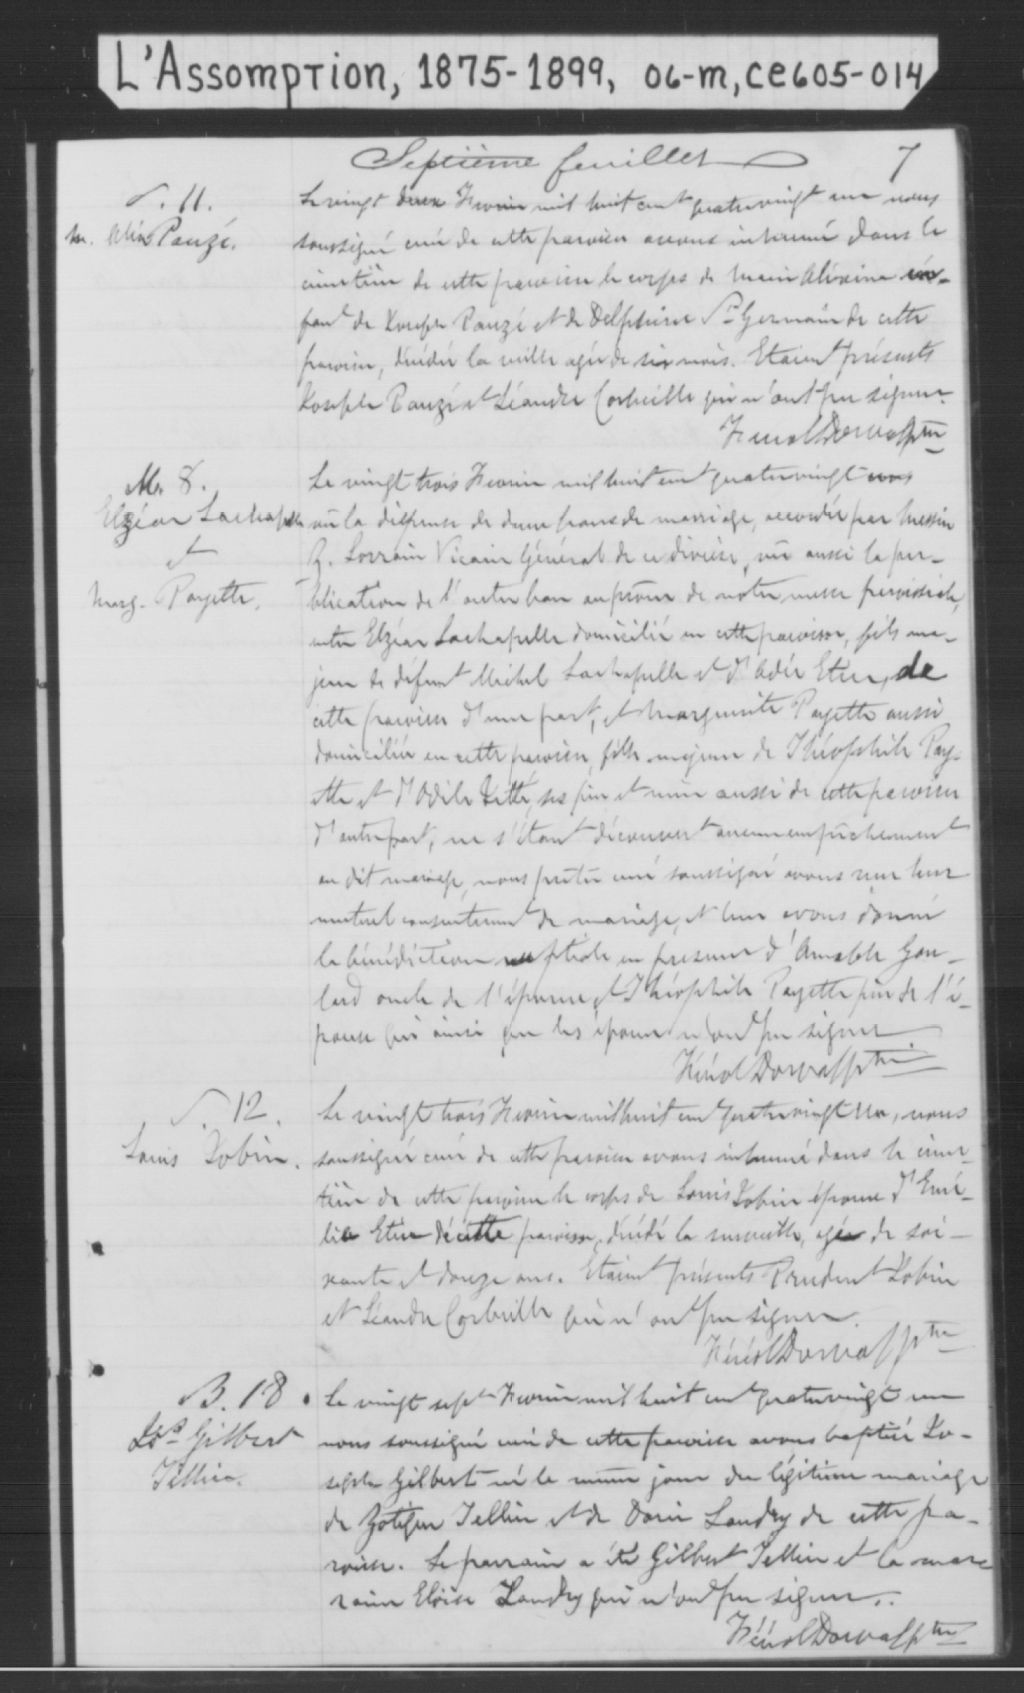 L'Assomption, 1875-1899, 06-m, ce605-014
Septième feuillet 7
S. 11.
m. Alex Pauzé.
Le vingt deux Fevrier mil huit cent quatrevingt un nous
soussigné curé de cette paroisse avons inhumé dans le
cimetière de cette paroisse le corps de Marie Alexina en-
fant de Joseph Pauzé et de Delphine St Germain de cette
paroisse, décédée la veille agée de six mois. Etaient présents
Joseph Pauzé et Léandre Corbeille qui n'ont pu signer.
F. Dorval Ptre
M. 8.
Elzéar Lachapelle
et
Marg. Payette.
Le vingt trois Fevrier mil huit cent quatrevingt un
vû la dispense de deux bans de mariage, accordée par Messire
Lorrain Vicaire Général de ce diocèse, vû aussi la pu-
blication de l'autre ban au prône de notre messe paroissiale,
entre Elzéar Lachapelle domicilié en cette paroisse, fils ma-
jeur de défunt Michel Lachapelle et d' Adée Ethier, de
cette paroisse d'une part, et Marguerite Payette aussi
domiciliée en cette paroisse, fille majeure de Théophile Pay-
ette et d'Odile ses père et mère aussi de cette paroisse
d'autre part, ne s'étant découvert aucun empêchement
au dit mariage, nous prêtre curé soussigné avons reçu leur
mutuel consentement de mariage, et leur avons donné
la bénédiction nuptiale en présence d'Amable Gou-
lard oncle de l'épouse et Théophile Payette père de l'é-
pouse qui ainsi que les époux n'ont pu signer
F. Dorval Ptre
S. 12.
Louis Jobin.
Le vingt trois Fevrier mil huit cent quatrevingt un, nous
soussigné curé de cette paroisse avons inhumé dans le cime-
tière de cette paroisse le corps de Louis Jobin époux d'Emé-
lie Ethier de cette paroisse, décédé la surveille, agé de soi-
xante et douze ans. Etaient présents Prudent Jobin
et Léandre Corbeille qui n'ont pu signer.
F. Dorval Ptre
B. 18.
Jos. Gilbert
Tellier.
Le vingt sept Fevrier mil huit cent quatrevingt un
nous soussigné curé de cette paroisse avons baptisé Jo-
seph Gilbert né le même jour du légitime mariage
de Zotique Tellier et de Landry de cette pa-
roisse. Le parrain a été Gilbert Tellier et la mar-
raine Eloïse Landry qui n'ont pu signer.
F. Dorval Ptre